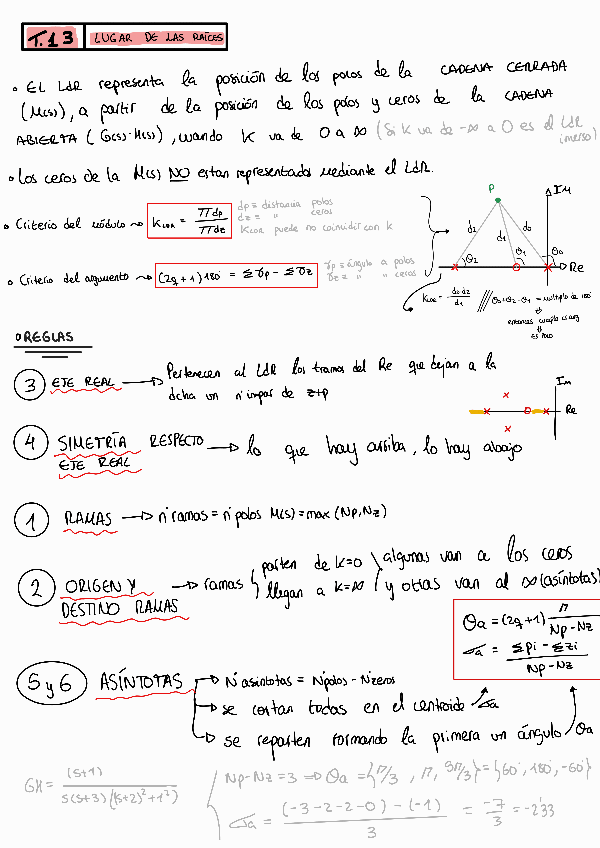 T.13 LUGAR DE LAS RAÍCES
• EL LdR representa la posición de los polos de la CADENA CERRADA
(M(s)), a partir de la posición de los polos y ceros de la CADENA
ABIERTA (G(s)·H(s)), cuando K va de 0 a ∞ (Si K va de -∞ a 0 es el LdR
inverso)
• Los ceros de la M(s) NO estan representados mediante el LdR.
• Criterio del módulo ~> K_LDR = πdp / πdz
dp = distancia polos
dz = " ceros
K_LDR puede no coincidir con K
• Criterio del argumento ~> (2q+1)180° = Σγp - Σγz
γp = ángulo a polos
γz = " " ceros
P
Im
d2 d1 d0
θ2 θ1 θ0
Re
K_LDR = d0 d2 / d1 // θ0+θ2-θ1 = múltiplo de 180°
⇓
entonces cumple cs arg
⇓
ES POLO
○ REGLAS
③ EJE REAL → Pertenecen al LdR los tramos del Re que dejan a la
dcha un nº impar de z+p
Im
Re
④ SIMETRÍA RESPECTO → lo que hay arriba, lo hay abajo
EJE REAL
① RAMAS → nº ramas = nº polos M(s) = max (Np, Nz)
② ORIGEN Y → ramas
DESTINO RAMAS
parten de K=0
llegan a K=∞
algunas van a los ceros
y otras van al ∞ (asíntotas)
θa = (2q+1) π / Np-Nz
σa = Σpi - Σzi / Np-Nz
5 y 6 ASÍNTOTAS → Nº asíntotas = Nºpolos - Nºzeros
→ se cortan todas en el centroide σa
→ se reparten formando la primera un ángulo θa
GH = (s+1) / s(s+3)((s+2)²+1²)
Np-Nz = 3 ⇒ θa = {π/3, π, 5π/3} = {60°, 180°, -60°}
σa = (-3-2-2-0) - (-1) / 3 = -7/3 = -2'33